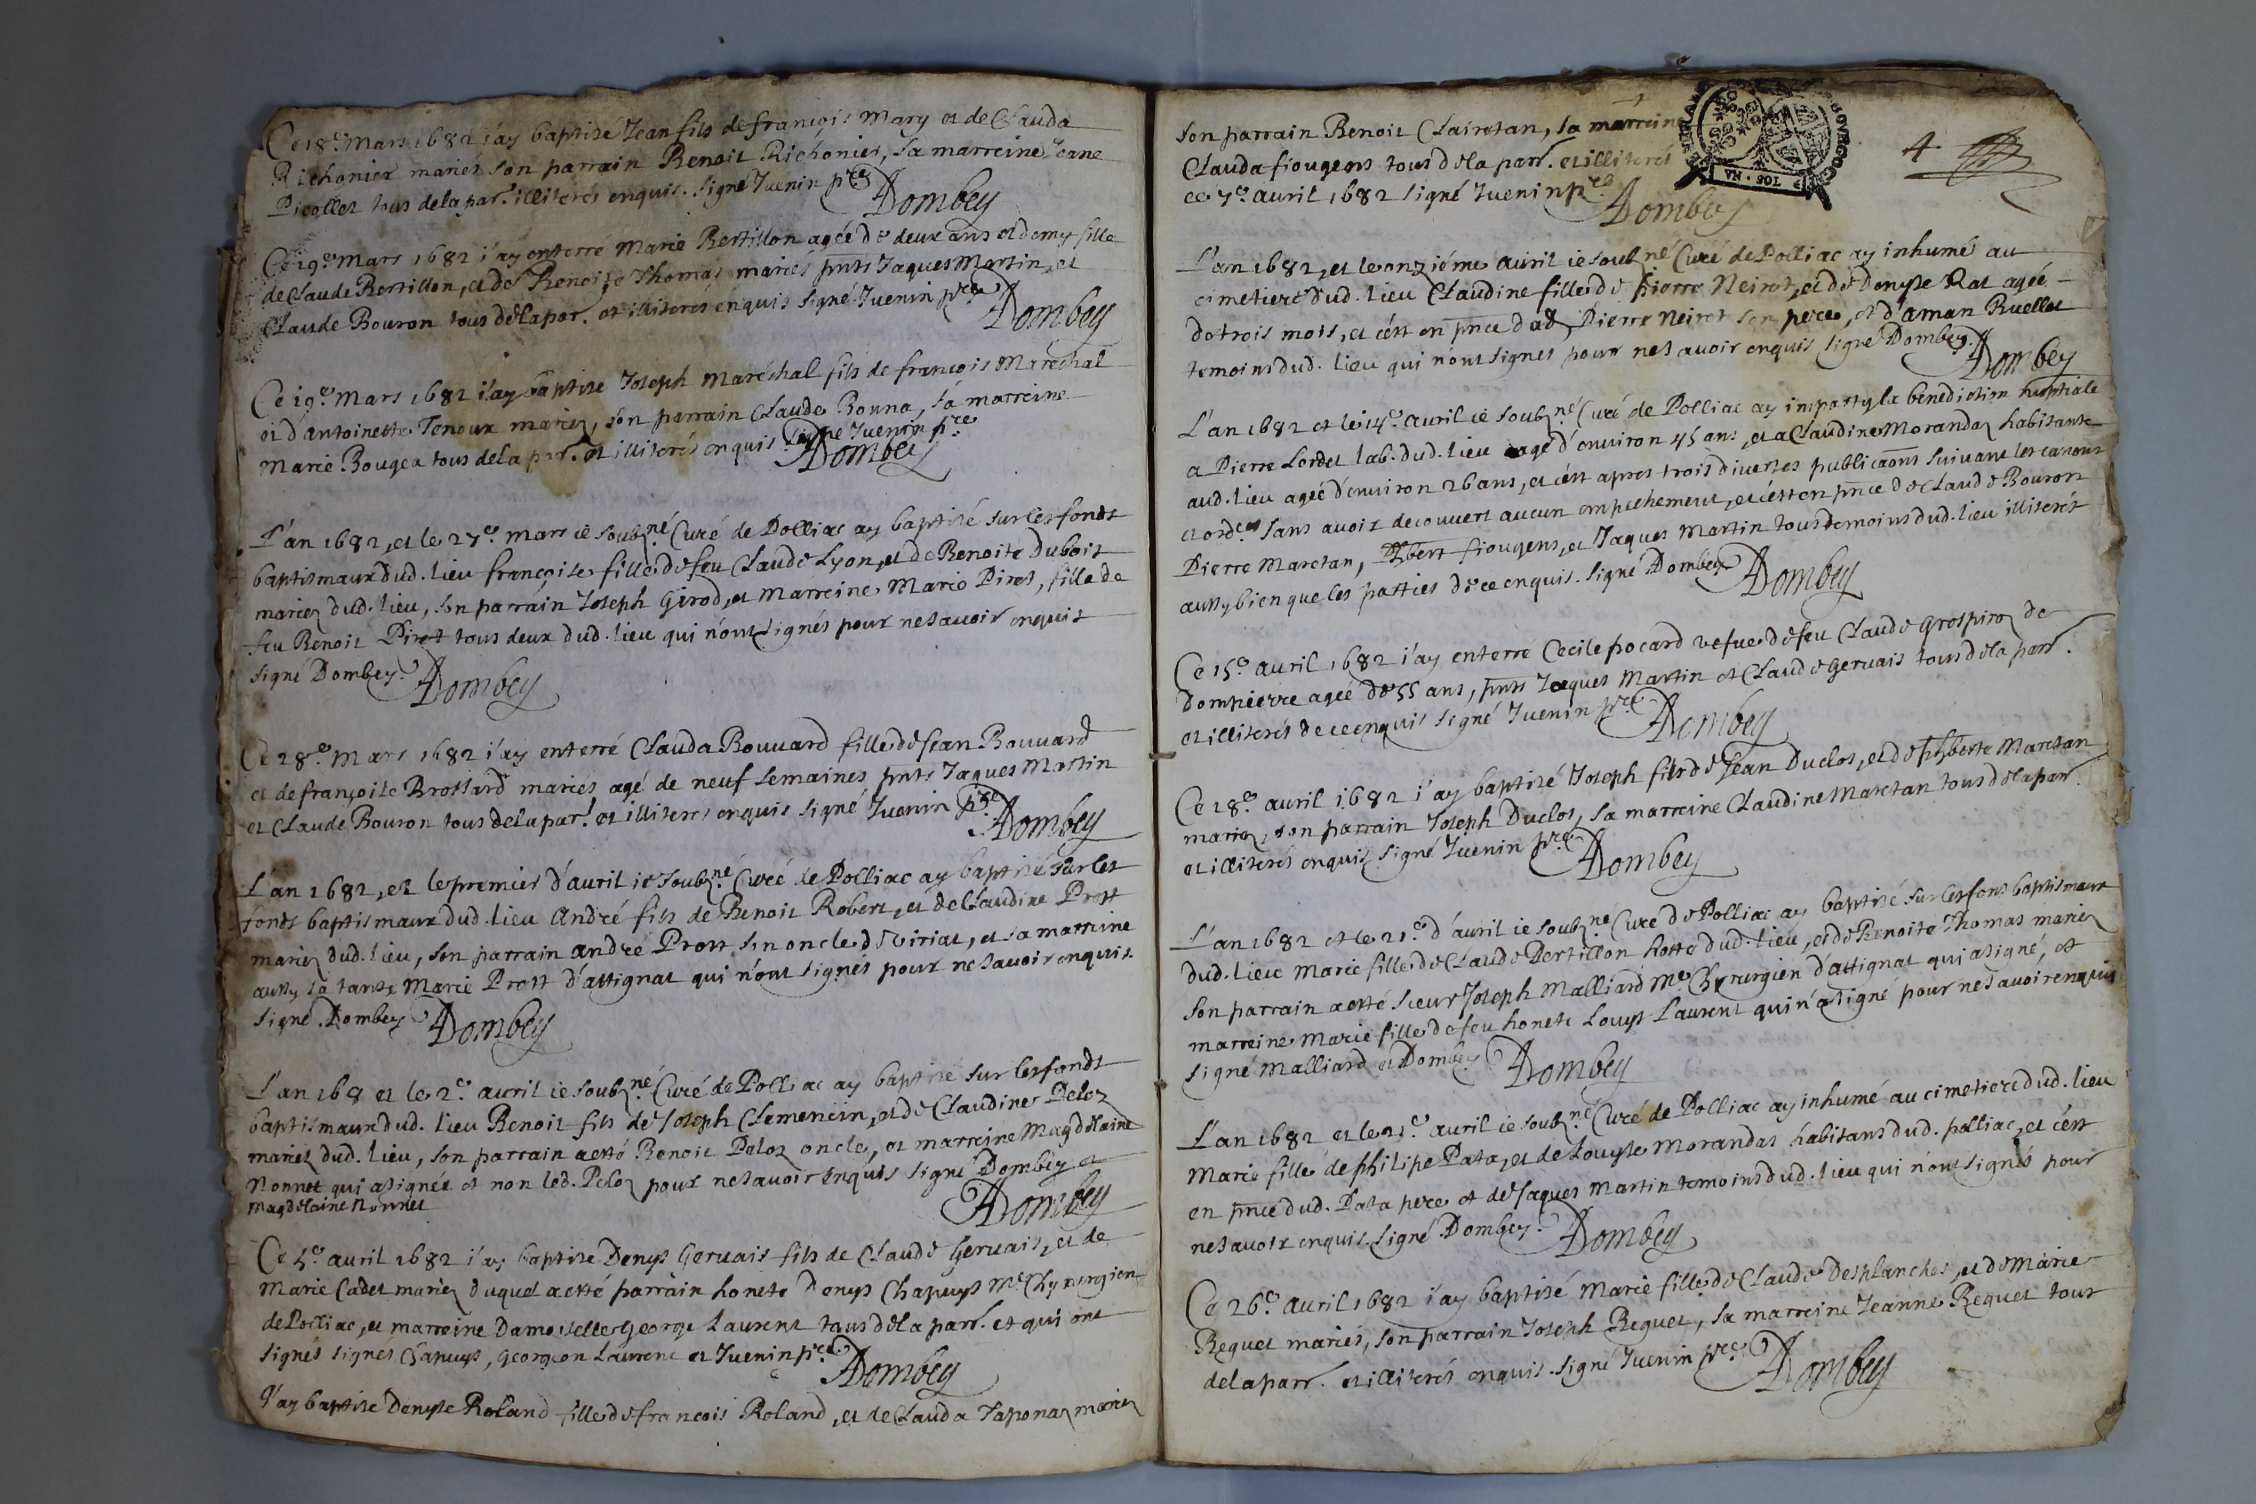 Ce 18.e Mars 1682 i'ay baptisé Jean fils de françois Mary et de Clauda
Richonier mariés son parrain Benoit Richonier, sa marreine Jeane
Picollet tous de la par. illiterés enquis. signé Juenin pre
Dombey
Ce 19.e Mars 1682 i'ay enterré Marie Bertillon agée de deux ans et demy fille
de Claude Bertillon, et de Benoite Thomas mariés pnts Jaques Martin, et
Claude Bouron tous de la par. et illiterés enquis signé Juenin pre
Dombey
Ce 19.e Mars 1682 i'ay baptisé Joseph Maréchal fils de françois Maréchal
et d'Antoinette Tenoux mariez, son parrain Claude Bonna, sa marreine
Marie Bougea tous de la par. et illiterés enquis signé Juenin pre
Dombey
L'an 1682, et le 27.e mars ie soubz.né Curé de Polliac ay baptisé sur les fonds
baptismaux dud. lieu françoise fille de feu Claude Lyon, et de Benoite Dubois
mariez dud. lieu, son parrain Joseph Girod, et Marreine Marie Piret, fille de
feu Benoit Piret tous deux dud. lieu qui n'ont signés pour ne savoir enquis
signé Dombey. Dombey
Ce 28.e Mars 1682 i'ay enterré Clauda Bouuard fille de Jean Bouuard
et de françoise Brossard mariés agé de neuf semaines pnts Jaques Martin
et Claude Bouron tous de la par. et illiterés enquis signé Juenin pre
Dombey
L'an 1682, et le premier d'avril ie soubz.né Curé de Polliac ay baptisé sur les
fonds baptismaux dud. lieu André fils de Benoit Robert, et de Claudine Prost
mariez dud. lieu, son parrain André Prost son oncle d Viriat, et sa marreine
aussy sa tante Marie Prost d'attignat qui n'ont signés pour ne savoir enquis.
signé Dombey Dombey
L'an 168 et le 2.e avril ie soubz.né Curé de Polliac ay baptisé sur les fonds
baptismaux dud. lieu Benoit fils de Joseph Clemencin, et de Claudine Peloz
mariez dud. lieu, son parrain a esté Benoit Peloz oncle, et marreine Magdelaine
Nonnet qui a signée et non led. Peloz pour ne savoir enquis signé Dombey et
Magdelaine Nonnet
Dombey
Ce 5.e avril 1682 i'ay baptisé Denys Gervais fils de Claude Gervais, et de
Marie Cadet mariez duquel a esté parrain honete Denys Chapuys Me Chyrurgien
de Polliac, et marreine Damoiselle George Laurent tous de la parr. et qui ont
signés signés Chapuys, Georgeon Laurent et Juenin pre
Dombey
J'ay baptisé Denyse Roland fille de françois Roland, et de Clauda Taponaz mariez
son parrain Benoit Clairetan, sa marreine
Clauda fiougens tous de la parr. et illiterés
ce 7.e avril 1682 signé Juenin pre
Dombey
4
L'an 1682, et le onziéme avril ie soubz.né Curé de Polliac ay inhumé au
cimetiere dud. lieu Claudine fille de pierre Neiret, et de Denyse Rat agée
de trois mois, et c'est en pnce dud. Pierre Neiret son pere, et d'aman Ruellet
temoins dud. lieu qui n'ont signés pour ne savoir enquis signé Dombey.
Dombey
L'an 1682 et le 14.e avril ie soubz.né Curé de Polliac ay imparty la benediction nuptiale
a Pierre Lordet lab. dud. lieu agé d'environ 45 ans, et a Claudine Morandaz habitante
aud. lieu agée d'environ 26 ans, et c'est apres trois diverses publicaons suivant les canons
et ord.es sans avoir decouvert aucun empechement, et c'est en pnce de Claude Bouron
Pierre Maretan, Phbert fiougens, et Jaques Martin tous temoins dud. lieu illiterés
aussy bien que les parties de ce enquis. signé Dombey
Dombey
Ce 15.e avril 1682 i'ay enterré Cecile pocard vefue de feu Claude Grospiron de
Dompierre agée de 55 ans, pnts Jaques Martin et Claude Gervais tous de la parr.
et illiterés de ce enquis signé Juenin pre
Dombey
Ce 18.e avril 1682 i'ay baptisé Joseph fils de Jean Duclos, et de phberte Maretan
mariez, son parrain Joseph Duclos, sa marreine Claudine Maretan tous de la par.
et illiterés enquis signé Juenin pre
Dombey
L'an 1682 et le 21.e d'avril ie soubz.né Curé de Polliac ay baptisé sur les fons baptismaux
dud. lieu Marie fille de Claude Bertillon hoste dud. lieu, et de Benoite Thomas mariez
son parrain a esté sieur Joseph Malliard Me Chyrurgien d'attignat qui a signé, et
marreine Marie fille de feu honete Louys Laurent qui n'a signé pour ne savoir enquis
signé Malliard et Dombey
Dombey
L'an 1682 et le 21.e avril ie soubz.né Curé de Polliac ay inhumé au cimetiere dud. lieu
Marie fille de philipe Pata, et de Louyse Morandas habitans dud. polliac, et c'est
en pnce dud. Pata pere et de Jaques Martin temoins dud. lieu qui n'ont signés pour
ne savoir enquis signé Dombey.
Dombey
Ce 26.e avril 1682 i'ay baptisé Marie fille de Claude Desplanches, et de Marie
Reguet mariés, son parrain Joseph Reguet, sa marreine Jeanne Reguet tous
de la parr. et illiterés enquis. signé Juenin pre
Dombey